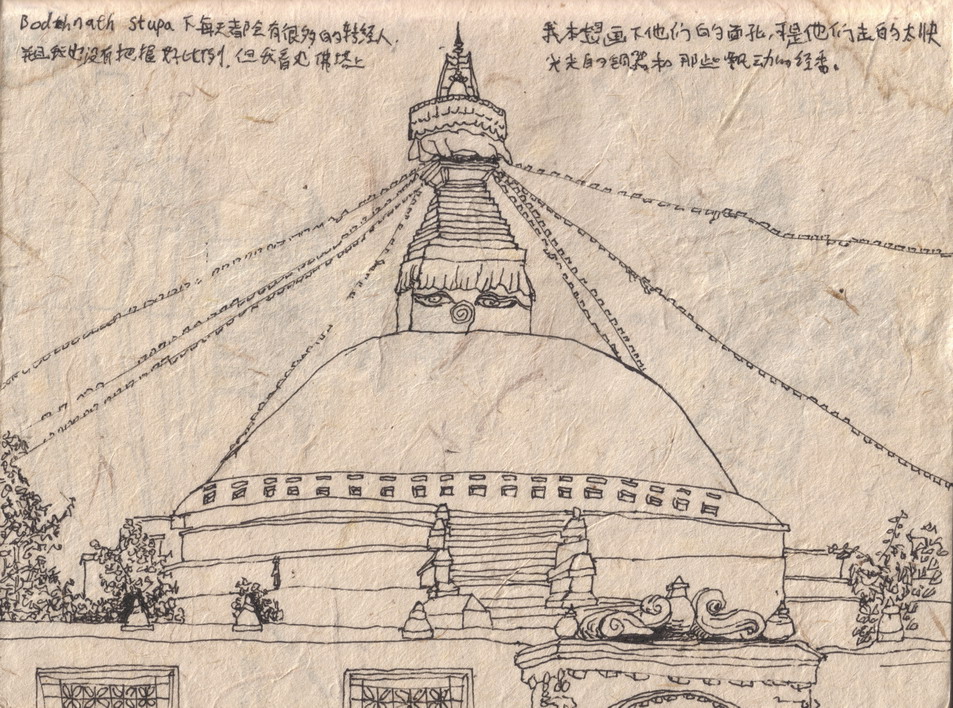 Bodhnath stupa 下每天都会有很多的转经人. 我本想画下他们的面孔,可是他们走的太快
而且我也没有把握好比例,但我看见佛塔上 的铜器和那些飘动的经番。